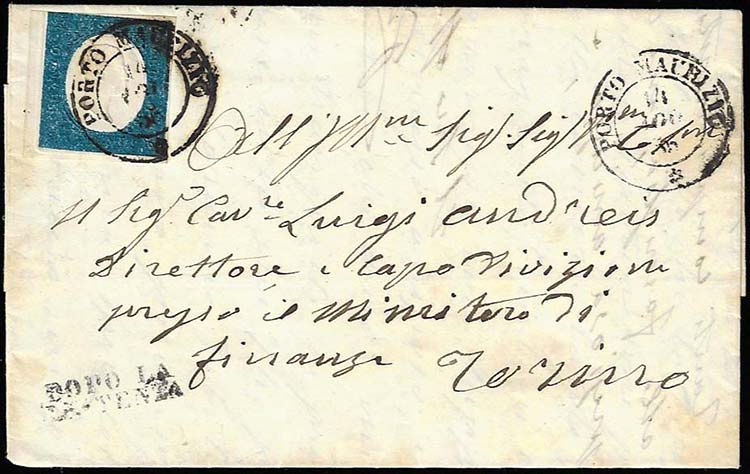 PORTO MAURIZIO
PORTO MAURIZIO
14
AGO
All' Ill.mo Sig. Sig.
Il Sig.r Cav.re Luigi Andreis
Direttore e Capo Divizione
presso il Ministero di
finanze Torino
DOPO LA
PARTENZA